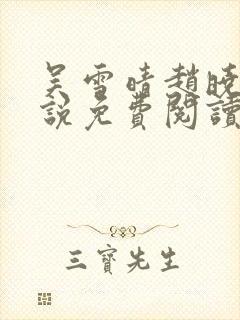 吴雪晴趙曉
說免費閱讀
三寶先生